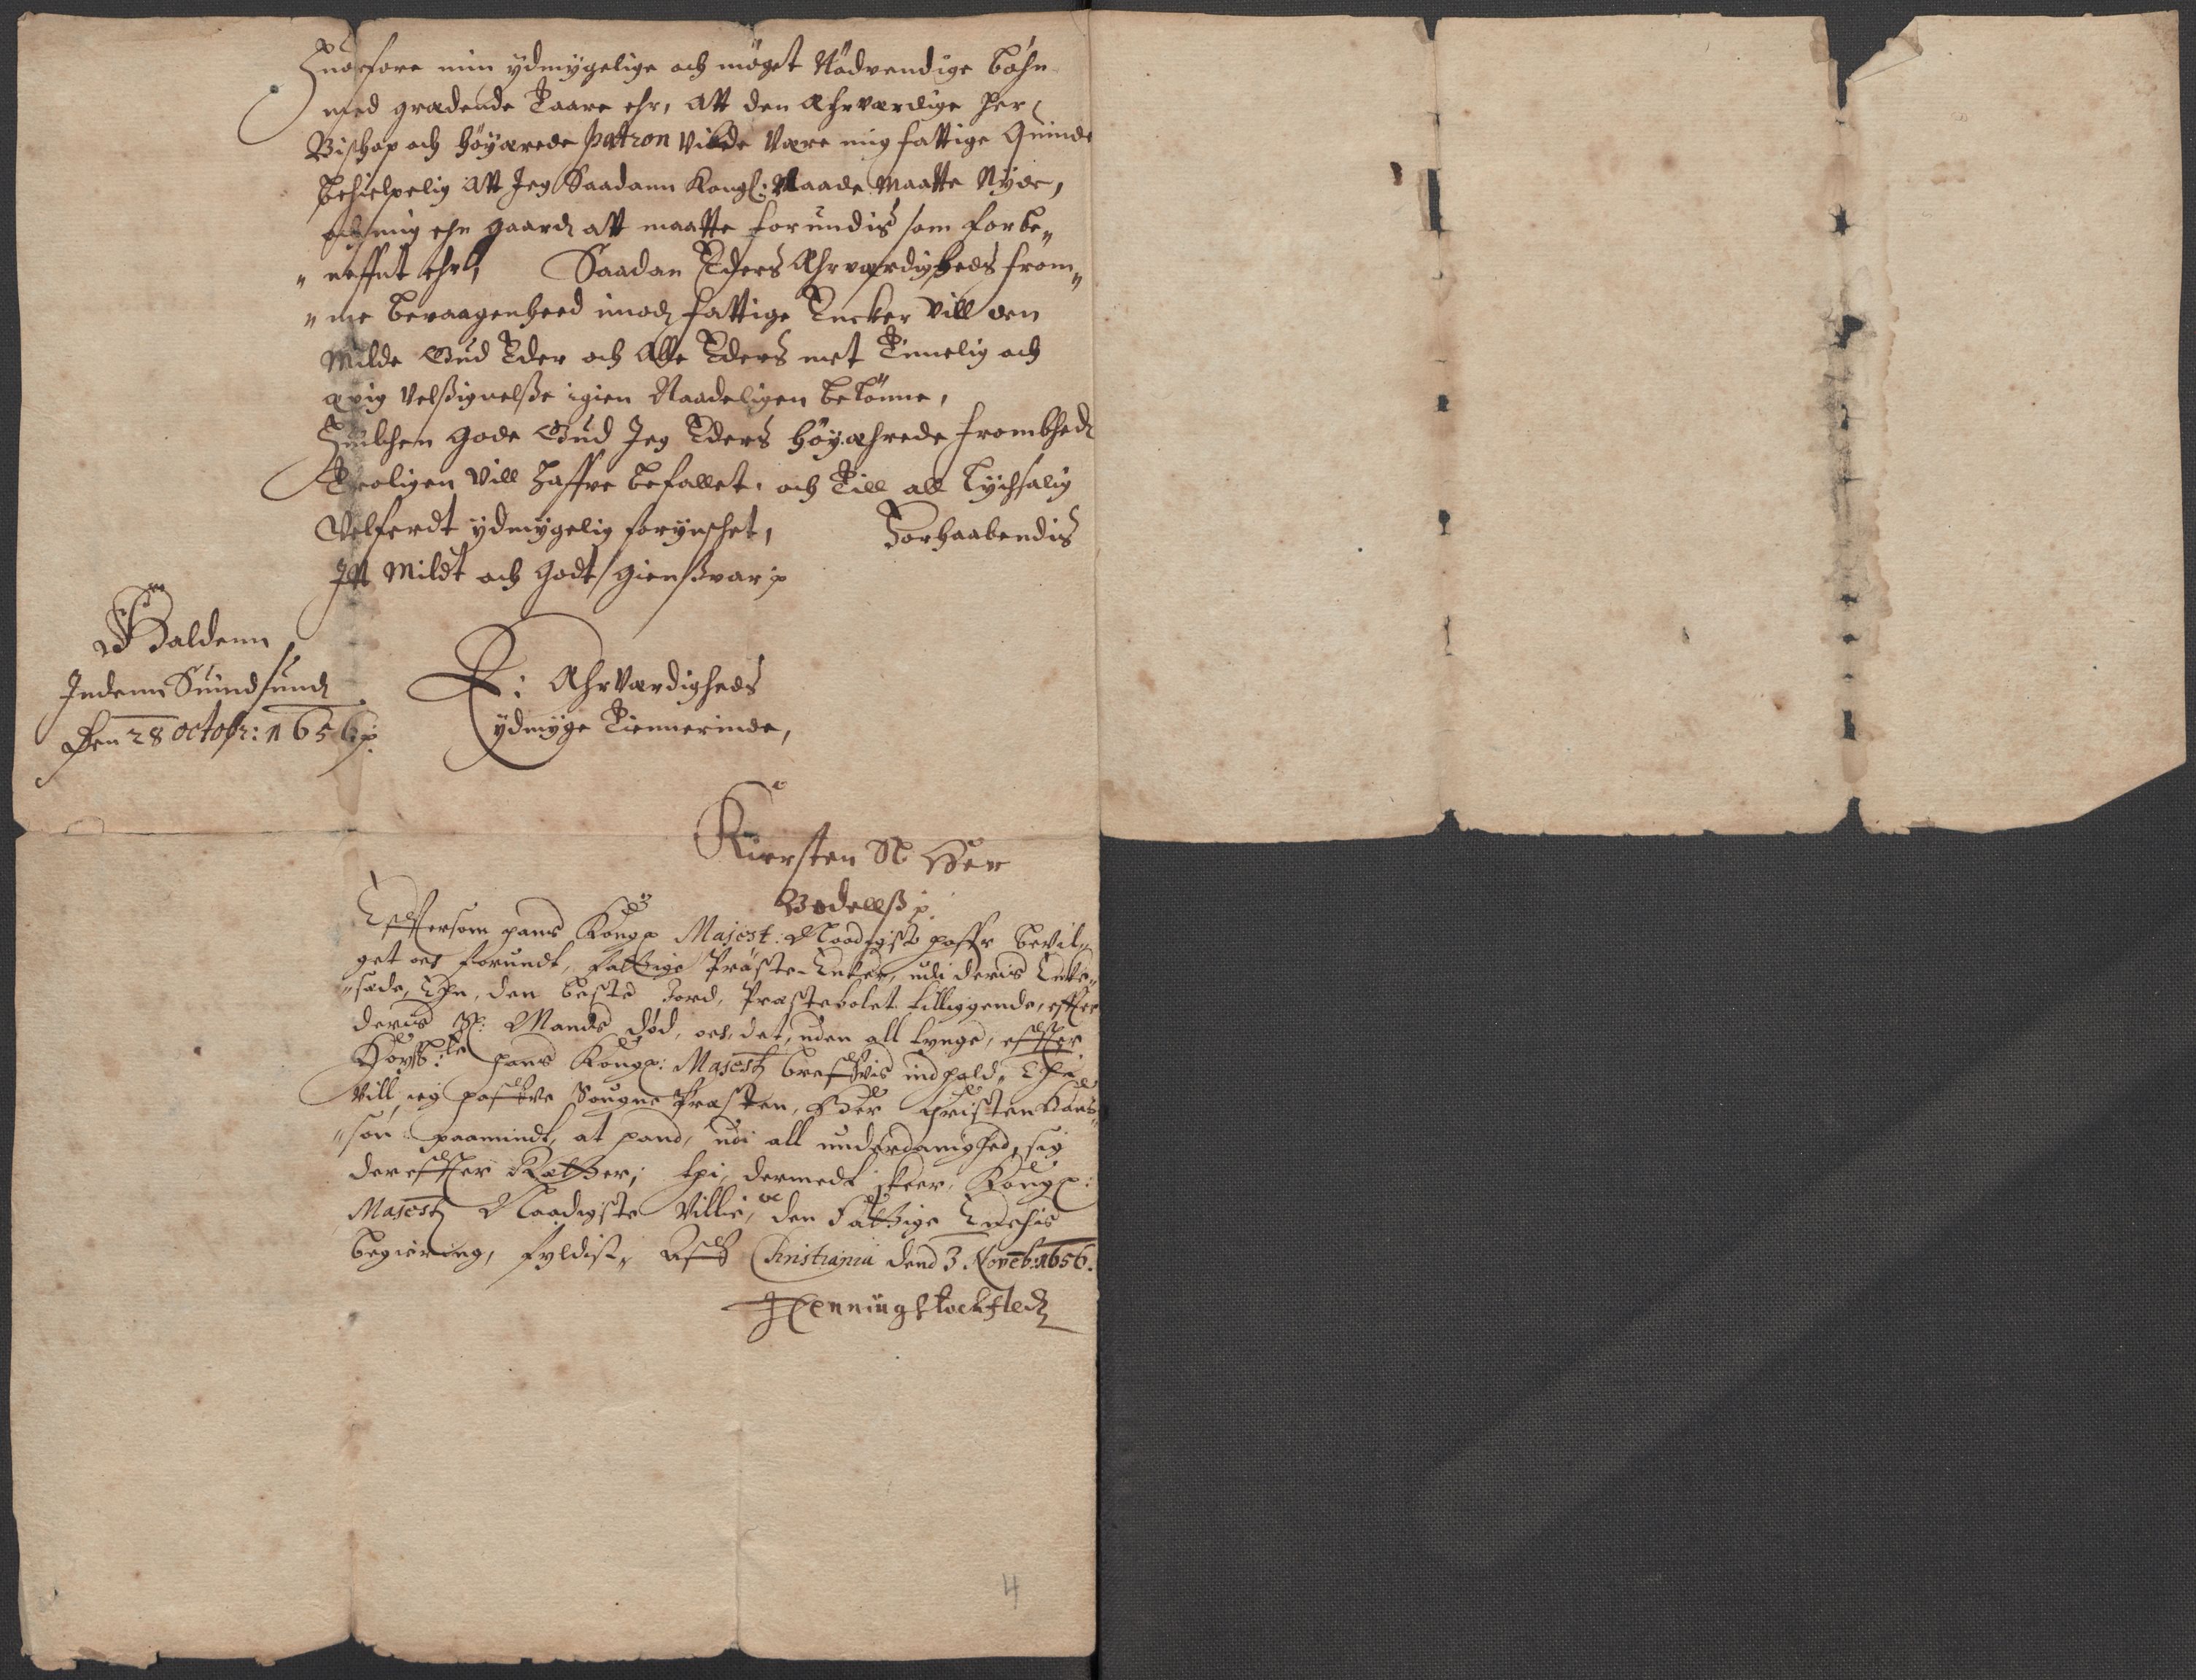 Huorfore min ydmygelige och möget Nödvendige böhn
med grædende Taare ehr, Att den Ahrværdige Her
Bischop och höÿærede patron vilde være mig fattige Quinde
behielpelig Att Jeg Saadann Kongl: Naade Maatte Nÿde,
och mig ehn gaard att maatte forundis som forbe„
„ neffnt ehr, Saadan Eders Ahrværdigheds from„
„ me bevaagenheed imod fattige Encker vill den
Milde Gud Eder och Alle Eders met Timelig och
ævig Velsignelße igien Naadeligen belönne,
Huilchen gode Gud Jeg Eders höÿæhrede frombhed
Troligen vill haffve befallet, och Till all Lÿchsalig
Velferdt ÿdmÿgelig forÿnschet, Forhaabendis
Itt mildt och godt gienßvar p
Halden
Indenn Suindsund
Den 28 octobr: 1656 p
E: AhrVærdigheds
ydmÿge Tiennerinde,
Kirsten Sl Her
Bodellß p
Effterson hans Kongl Majest: Naadigst haffr bevil„
get och forundt, fattige Præste-Encker, udi deris Encke„
„sæde, Ehn, den beste Jord, Præstebolet tilliggende, effter
deris Sl: Mands død, och, det, uden all tynge, effter
Høyst:te hans Kongl: Majest brefvis indhold, Ehr
vill ieg haffve Sougne Præsten, Her Christen Hans„
„søn paamindt, at hand, udi all underdanighed, sig
dereffter Retter; thi, dermed skeer, Kongl:
Majest Naadigste Villie, oc den Fattige Enchis
begiering, fyldist, Aff Christiania dend 3. Novèb: 1656.
Henning Stockfled
4